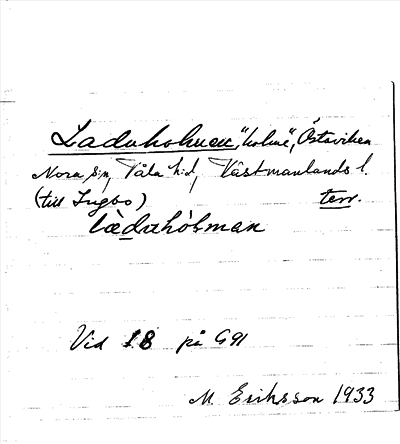 Laduholmen, "holme", Östaviken
Nora s:n, Våla h:d, Västmanlands l.
(till Ingbo) terr.
læ̀duhòlman
Vid 18 på G91
M. Eriksson 1933